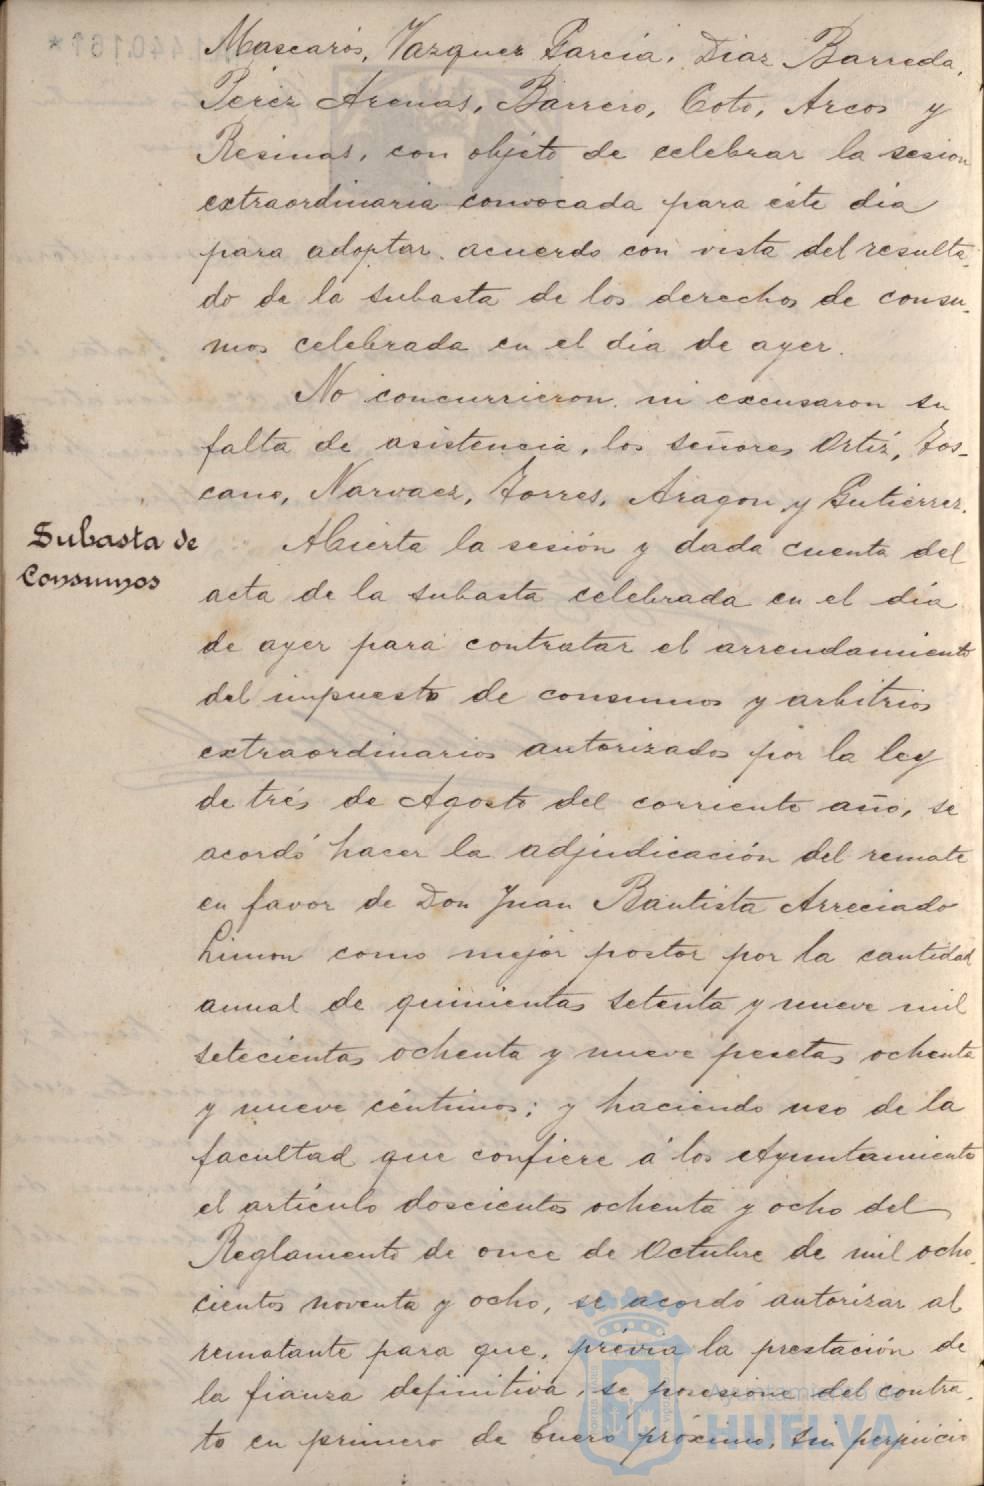 Mascarós, Vazquez García, Diaz Barreda,
Pérez Arenas, Barrero, Coto, Arcos y
Resinas, con objeto de celebrar la sesion
extraordinaria convocada para éste dia
para adoptar acuerdo con vista del resulta-
do de la subasta de los derechos de consu-
mos celebrada en el dia de ayer.
No concurrieron ni excusaron su
falta de asistencia, los señores Ortiz, Tos-
cano, Narvaez, Torres, Aragon y Gutierrez.
Subasta de
Consumos
Abierta la sesión y dada cuenta del
acta de la subasta celebrada en el dia
de ayer para contratar el arrendamiento
del impuesto de consumos y arbitrios
extraordinarios autorizados por la ley
de trés de Agosto del corriente año, se
acordó hacer la adjudicación del remate
en favor de Don Juan Bautista Arreciado
Limon como mejor postor por la cantidad
anual de quinientas setenta y nueve mil
setecientas ochenta y nueve pesetas ochenta
y nueve céntimos; y haciendo uso de la
facultad que confiere á los Ayuntamiento
el artículo doscientos ochenta y ocho del
Reglamento de once de Octubre de mil ocho-
cientos noventa y ocho, se acordó autorizar al
rematante para que, prévia la prestación de
la fianza definitiva, se posesione del contra-
to en primero de Enero próximo, sin perjuicio
Ayuntamiento de
HUELVA